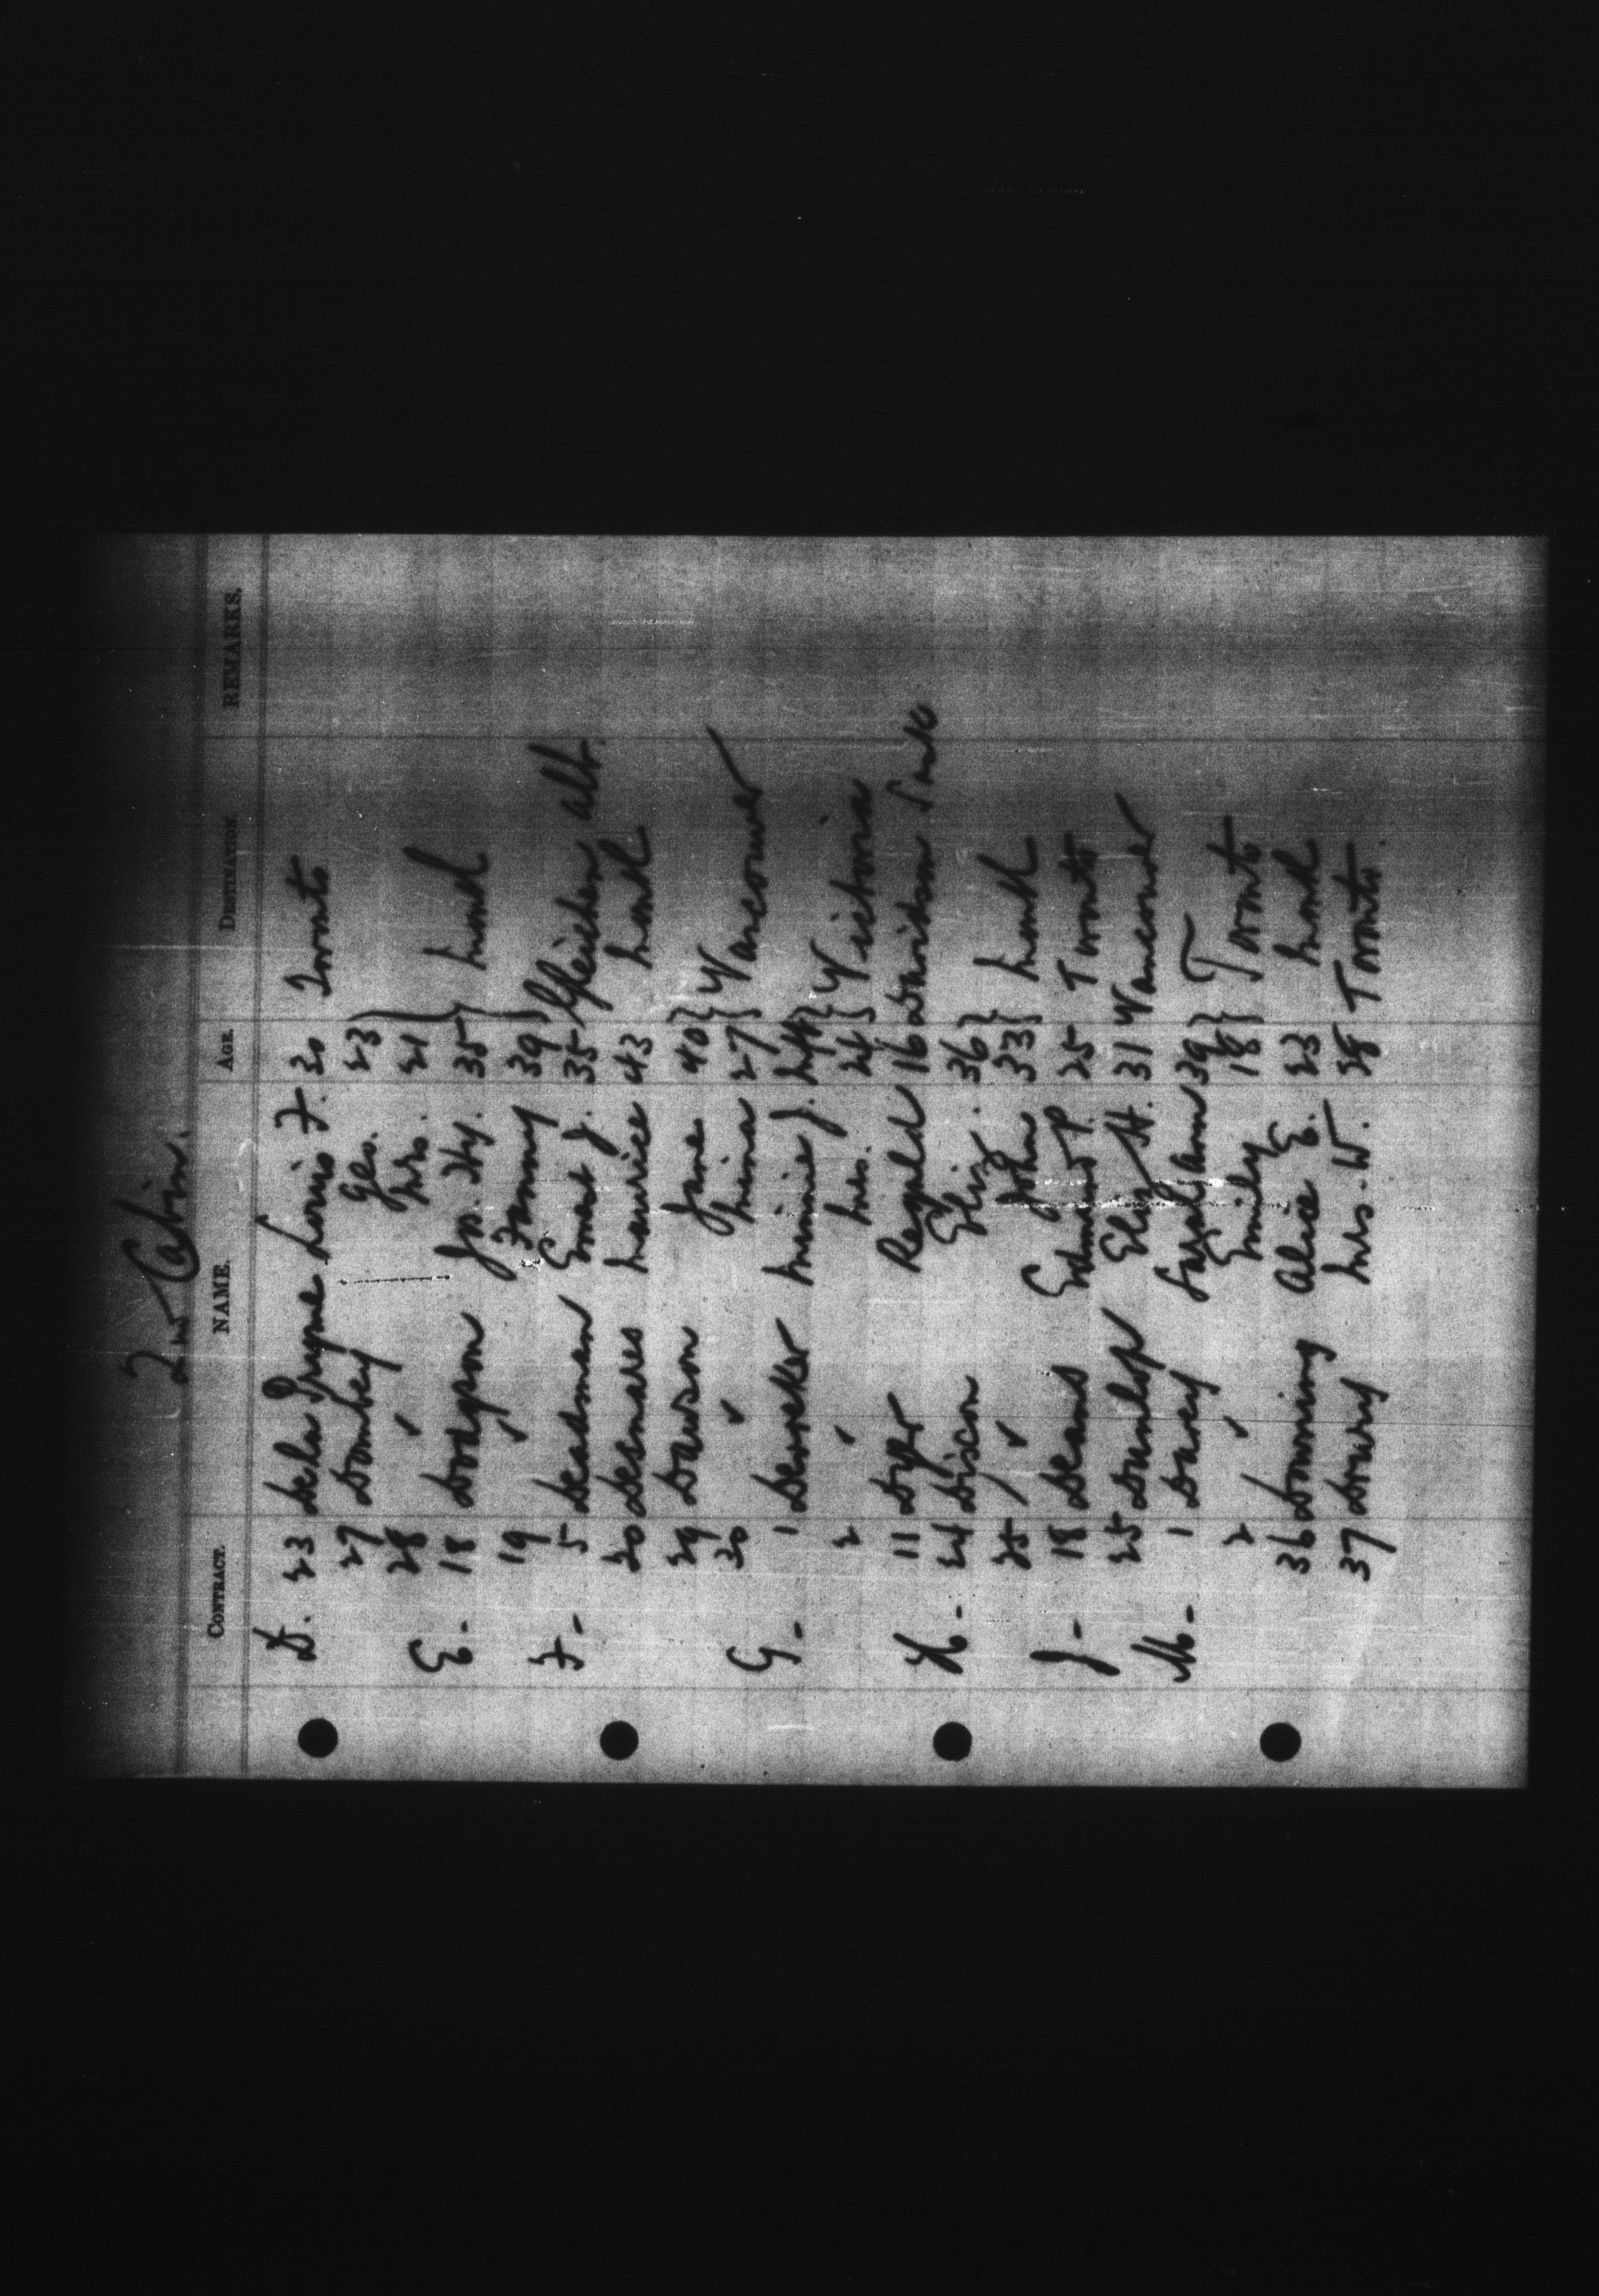 2nd Cabin.
CONTRACT. NAME. AGE. DESTINATION REMARKS.
D. 23 De la Pryme Louis F. 30 Toronto
27 Dombey Geo. 23
28 ✓ Mrs. 21
E- 18 Dodgson Jos. Hy. 35 Mont
19 ✓ Fanny 39
F- 5 Deadman Ernest J. 35 Gleichen Alt.
20 Desmares Maurice 43 Mont
29 Dawson Jane 40 Vancouver
30 ✓ Mina 27
G- 1 Minnie J. 44 Victoria
2 ✓ Mrs. 24
11 Dyer Regald 16 Davidson Sask
H- 24 Dixon Eliz. 36
25 ✓ John 33 Mont
J- 18 Deans Edmund P. 25 Toronto
25 Dunlop H. 31 Vancouver
M- 1 Davey Sarah Ann 39 Toronto
2 ✓ Emily 18
36 Domming Alice E. 23 Mont
37 Drury Mrs. W. 28 Toronto.